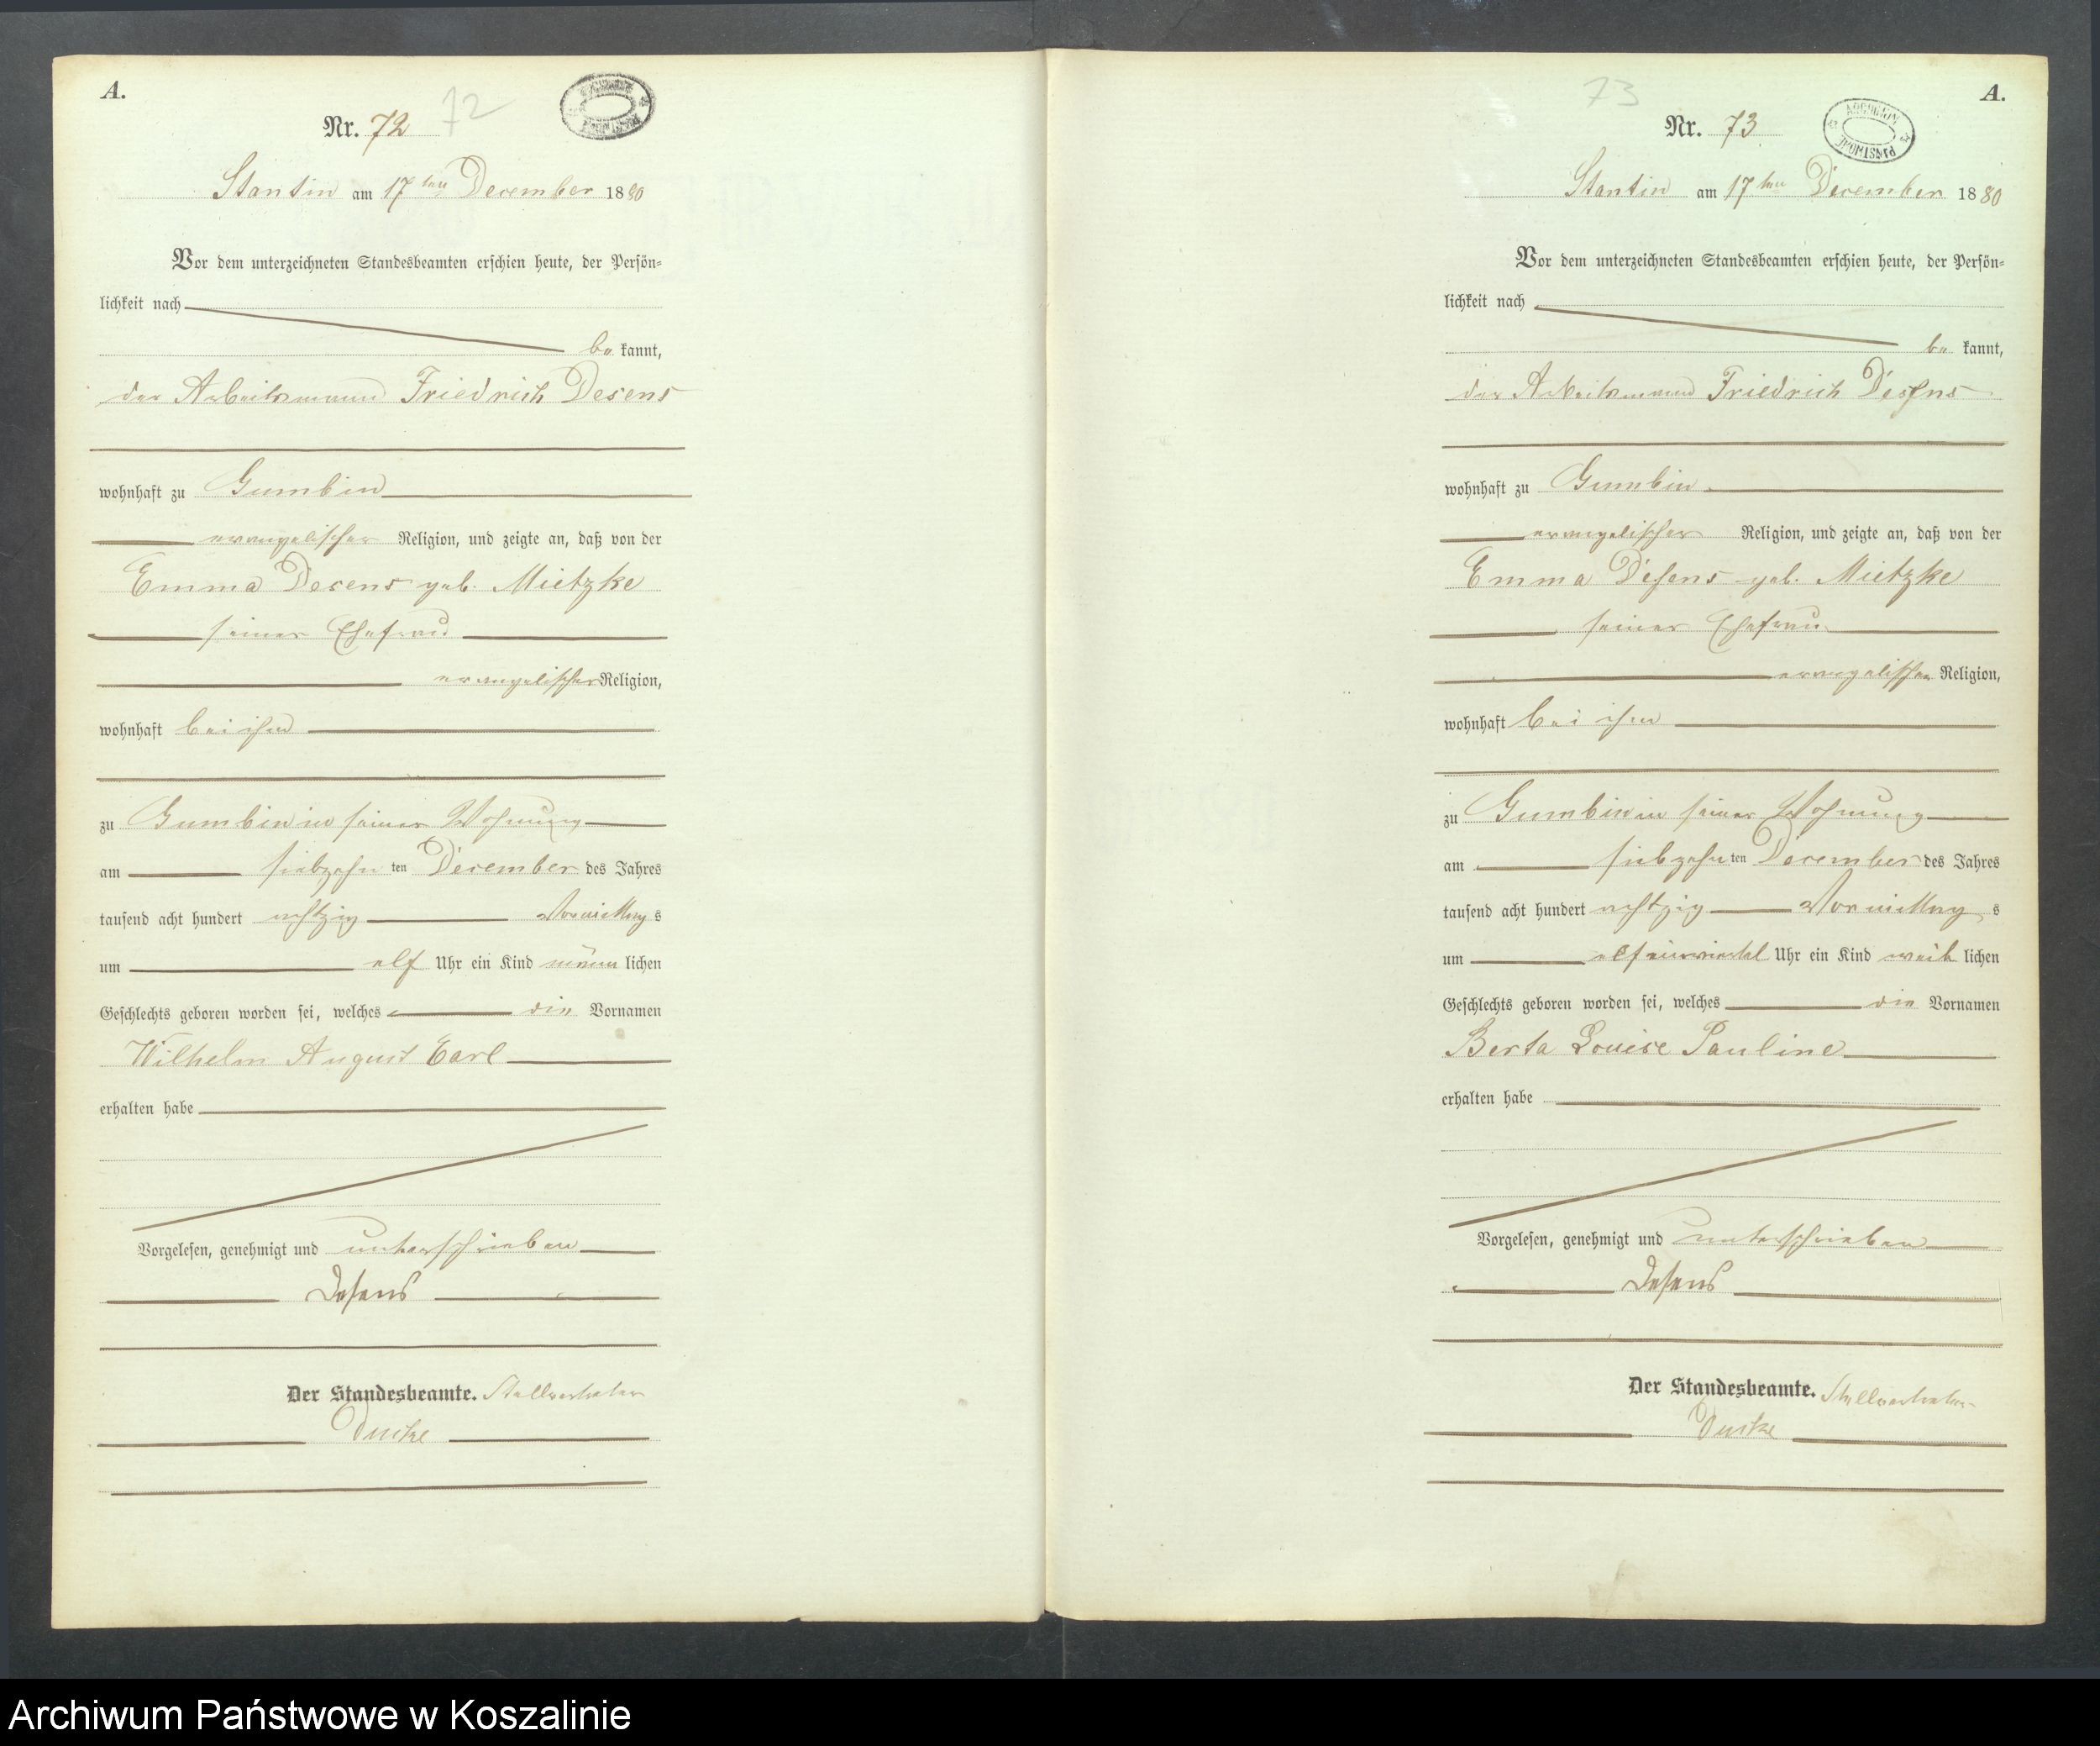 A.
Nr. 72 72
ARCHIWUM PAŃSTWOWE
Stantin am 17ten December 1880
Vor dem unterzeichneten Standesbeamten erschien heute, der Persön-
lichkeit nach
be kannt,
der Arbeitsmann Friedrich Desens
wohnhaft zu Gumbin
evangelischer Religion, und zeigte an, daß von der
Emma Desens geb. Mietzke
seiner Ehefrau
evangelischer Religion,
wohnhaft bei ihm
zu Gumbin in seiner Wohnung
am siebzehn ten December des Jahres
tausend acht hundert achtzig Vormittag s
um elf Uhr ein Kind männ lichen
Geschlechts geboren worden sei, welches die Vornamen
Wilhelm August Carl
erhalten habe
Vorgelesen, genehmigt und unterschrieben
Desens
Der Standesbeamte. Stellvertreter
73
A.
Nr. 73
ARCHIWUM PAŃSTWOWE
Stantin am 17ten December 1880
Vor dem unterzeichneten Standesbeamten erschien heute, der Persön-
lichkeit nach
be kannt,
der Arbeitsmann Friedrich Desens
wohnhaft zu Gumbin
evangelischer Religion, und zeigte an, daß von der
Emma Desens geb. Mietzke
seiner Ehefrau
evangelischer Religion,
wohnhaft bei ihm
zu Gumbin in seiner Wohnung
am siebzehn ten December des Jahres
tausend acht hundert achtzig Vormittag s
um elfeinviertel Uhr ein Kind weib lichen
Geschlechts geboren worden sei, welches die Vornamen
Berta Louise Pauline
erhalten habe
Vorgelesen, genehmigt und unterschrieben
Desens
Der Standesbeamte. Stellvertreter
Archiwum Państwowe w Koszalinie